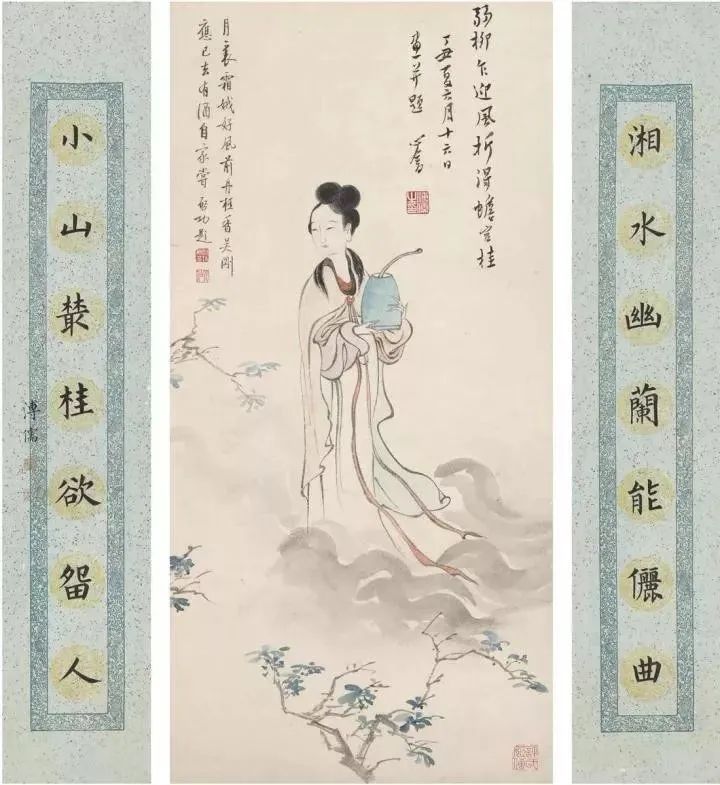 湘水幽蘭能儷曲
弱柳乍迎風折得蟾宮桂
丁丑夏六月十六日
畫并題 心畬
月裏霜娥好風前丹桂香吳剛
應已去有酒自家嘗啟功題
小山叢桂欲畱人
溥儒